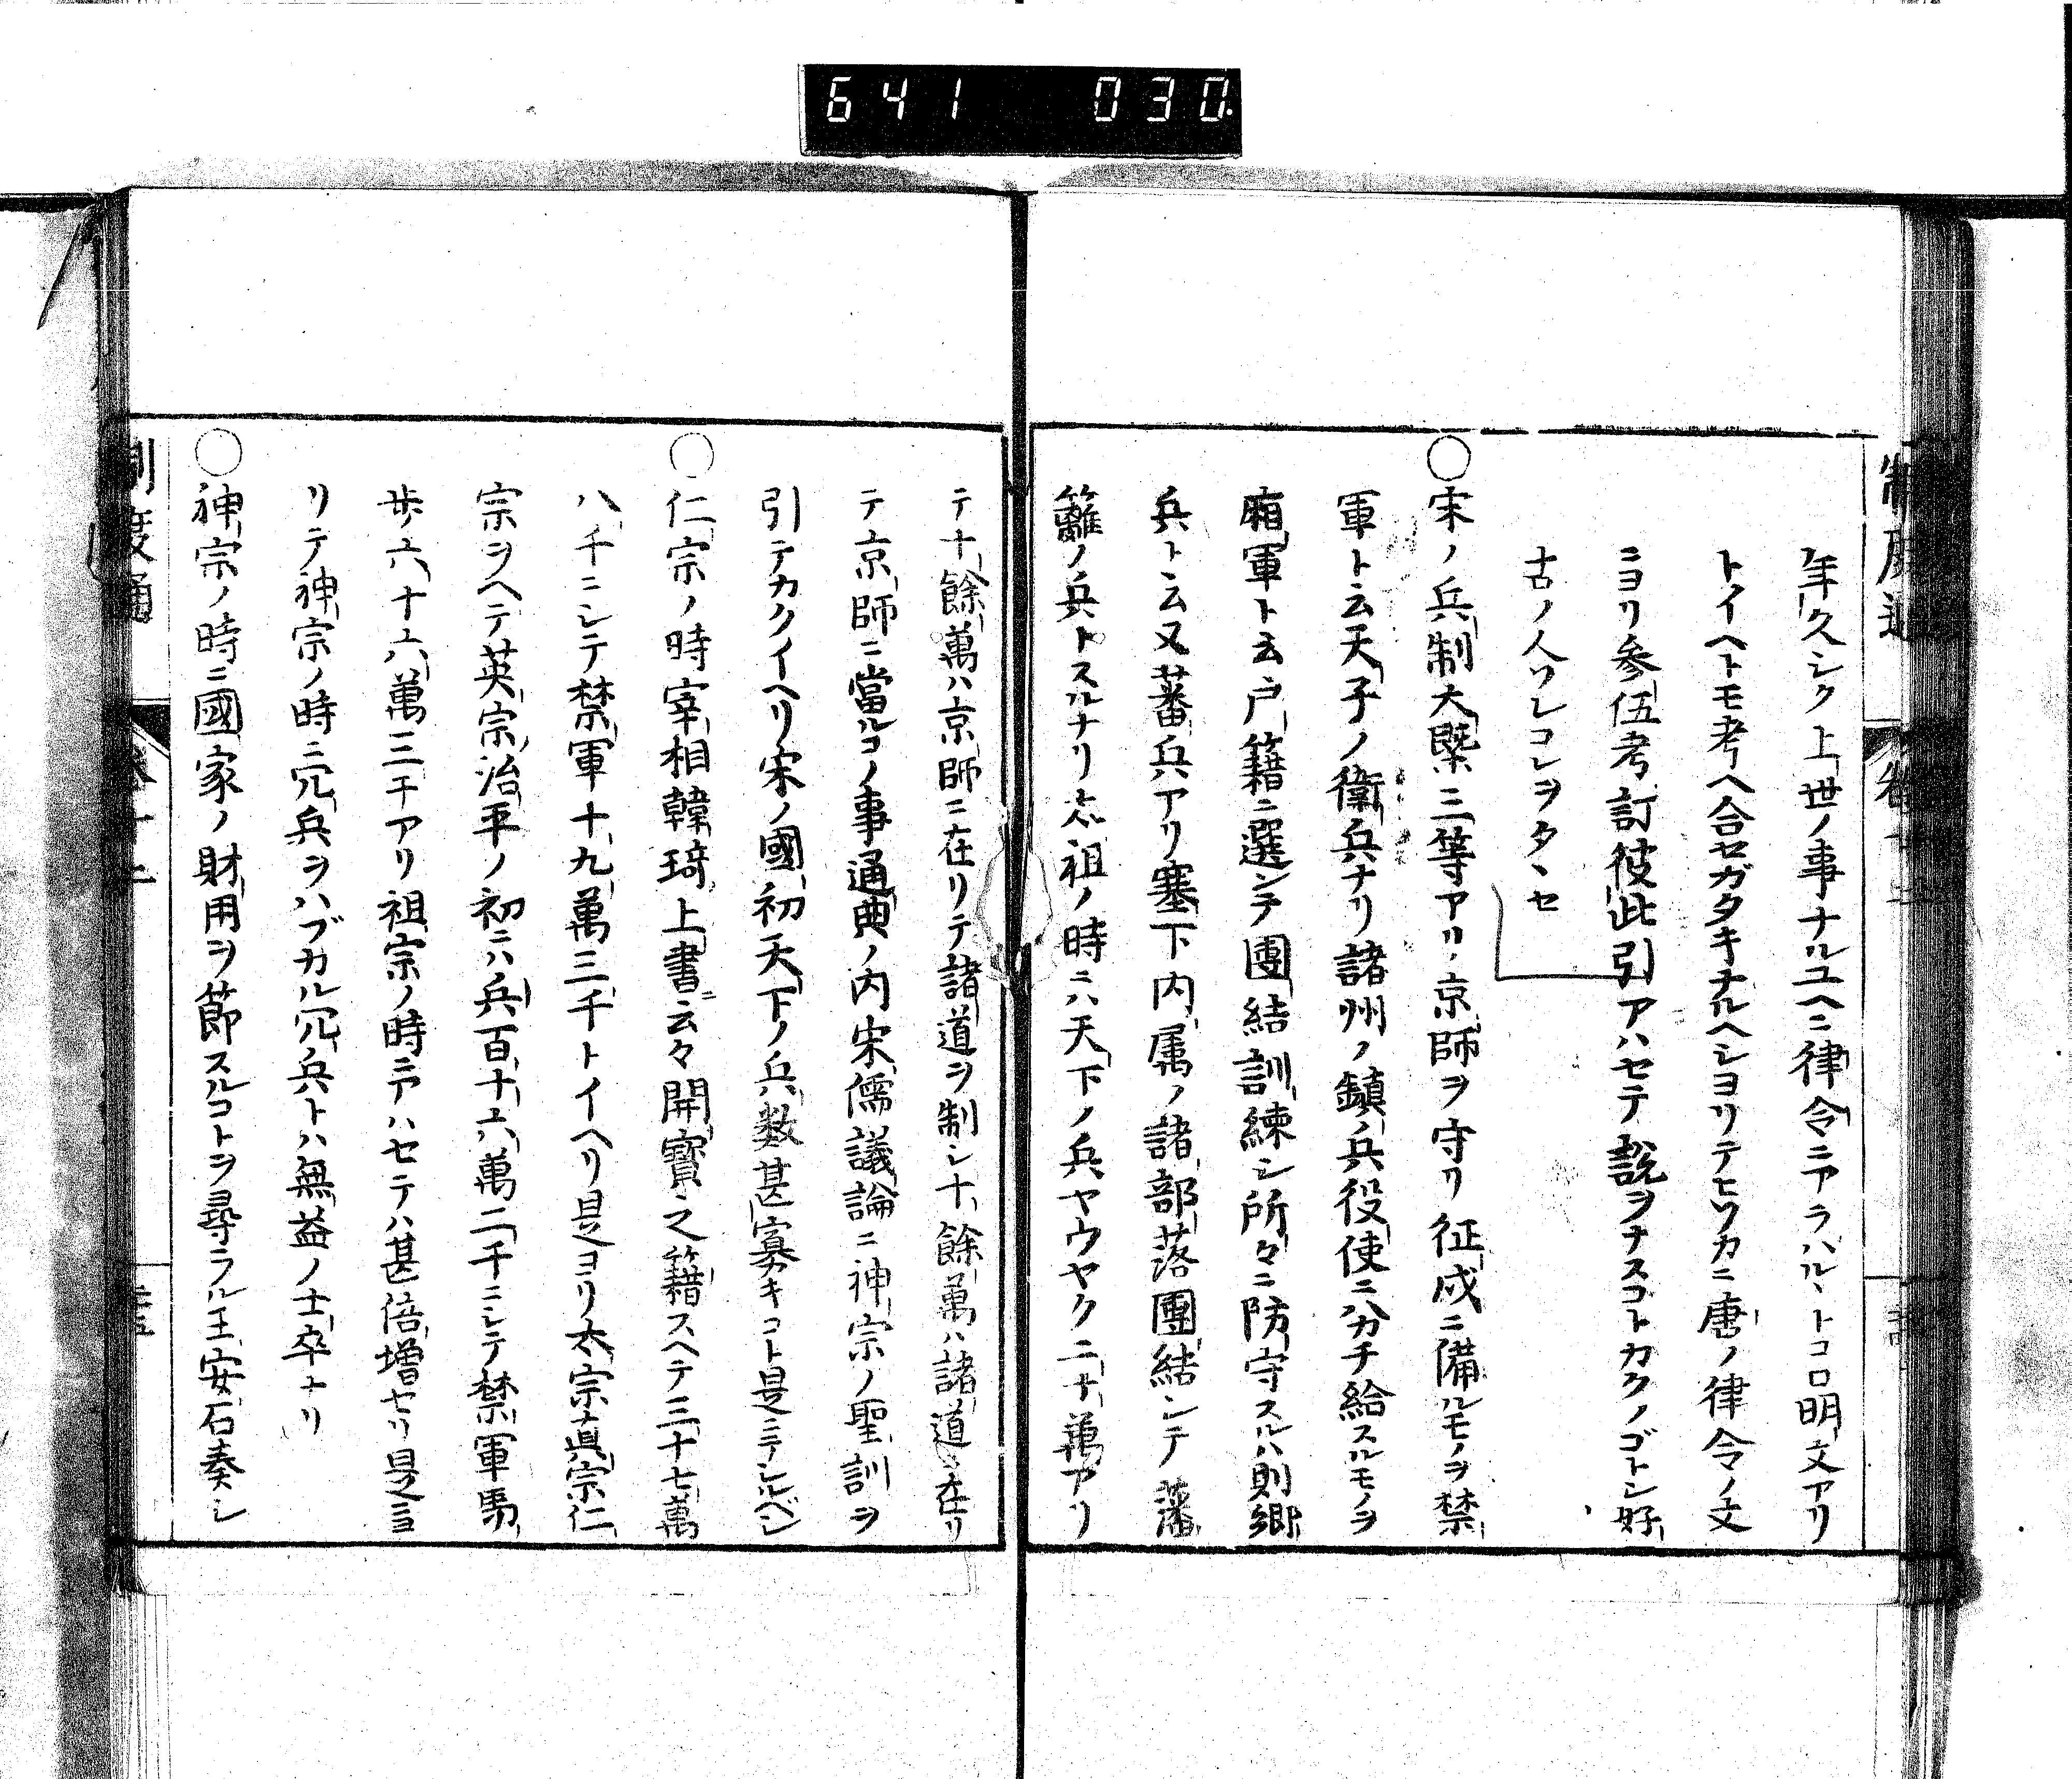 641 030
制度通
年久シク上世ノ事ナルユヘニ律令ニアラハルヽトコロ明文アリ
トイヘトモ考ヘ合セガタキナルヘシヨリテヒソカニ唐ノ律令ノ文
ニヨリ参伍考訂彼此引アハセテ説ヲナスコトカクノゴトシ好
古ノ人ワレコレヲタヽセ
〇宋ノ兵制大槩三等アリ京師ヲ守リ征戍ニ備ルモノヲ禁
軍ト云天子ノ衛兵ナリ諸州ノ鎮兵役使ニ分チ給スルモノヲ
廂軍ト云戸籍ニ選ンテ團結訓練シ所々ニ防守スルハ則郷
兵ト云又蕃兵アリ塞下内属ノ諸部落團結シテ藩
籬ノ兵トスルナリ太祖ノ時ニハ天下ノ兵ヤウヤクニ十萬アリ
テ十餘萬ハ京師ニ在リテ諸道ヲ制シ十餘萬ハ諸道ニ在リ
テ京師ニ當ルコノ事通典ノ内宋儒議論ニ神宗ノ聖訓ヲ
引テカクイヘリ宋ノ國初天下ノ兵数甚寡キコト是ニテシルベシ
〇仁宗ノ時宰相韓琦上書ニ云々開寳之籍スヘテ三十七萬
八千ニシテ禁軍十九萬三千トイヘリ是ヨリ太宗真宗仁
宗ヲヘテ英宗治平ノ初ニハ兵百十六萬二千ニシテ禁軍馬
歩六十六萬三千アリ祖宗ノ時ニアハセテハ甚倍増セリ是ヨ
リテ神宗ノ時ニ冗兵ヲハブカル冗兵トハ無益ノ士卒ナリ
〇神宗ノ時ニ國家ノ財用ヲ節スルコトヲ尋ラル王安石奏シ
制度通